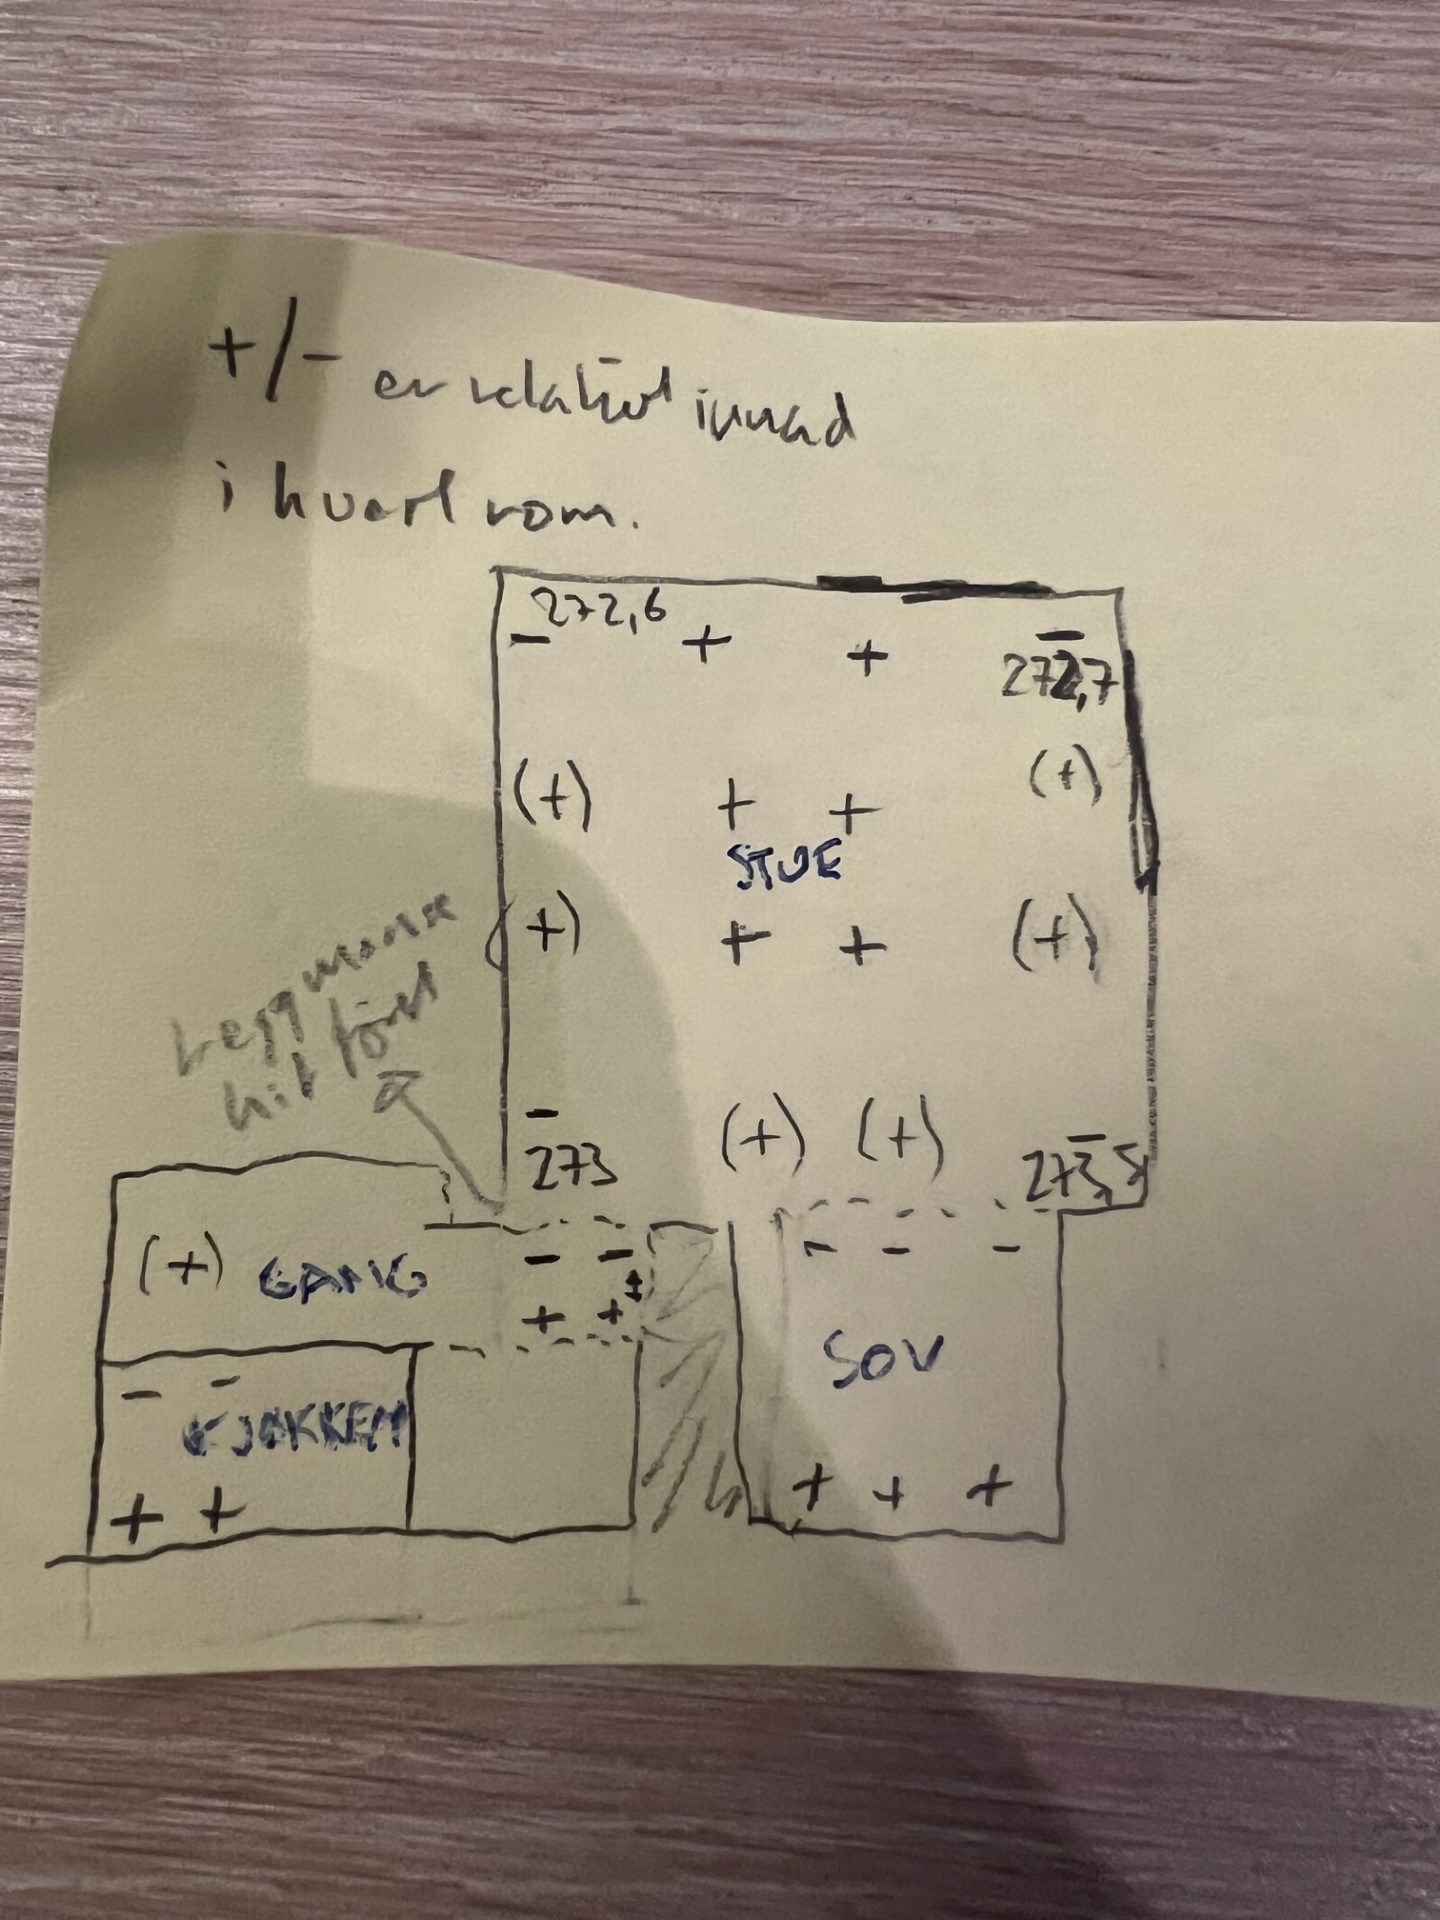 +/- er relativt innad
i hvert rom.
- 272,6 + + -
272,7
(+) + + (+)
STUE
(+) + + (+)
Legg masse
hit først
- (+) (+) -
273 273,5
- - - - -
(+) GANG
+ + +
SOV
- -
KJØKKEN
+ + + + +